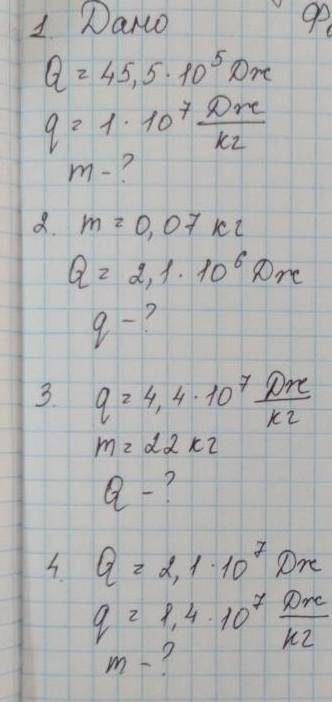 1. Дано Фо
Q = 45,5 · 10⁵ Дж
q = 1 · 10⁷ Дж/кг
m - ?
2. m = 0,07 кг
Q = 2,1 · 10⁶ Дж
q - ?
3. q = 4,4 · 10⁷ Дж/кг
m = 22 кг
Q - ?
4. Q = 2,1 · 10⁷ Дж
q = 1,4 · 10⁷ Дж/кг
m - ?